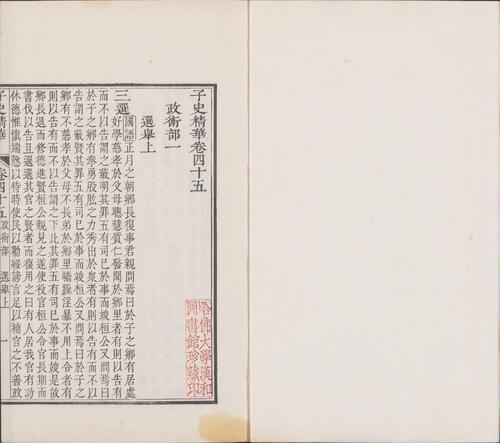 子史精華卷四十五
政術部一
選舉上
三選
國語正月之朝鄉長復事君親問焉曰於子之鄉有居處
好學慈孝於父母聰慧質仁發聞於鄉里者有則以告有
而不以告謂之蔽明其罪五有司已於事而竣桓公又問焉曰
於子之鄉有拳勇股肱之力秀出於衆者有則以告有而不以
告謂之蔽賢其罪五有司已於事而竣桓公又問焉曰於子之
鄉有不慈孝於父母不長弟於鄉里驕躁淫暴不用上令者有
則以告有而不以告謂之下比其罪五有司已於事而竣是故
鄉長退而修德進賢桓公親見之遂使役官桓公令官長期而
書伐以告且選選其官之賢者而復用之曰有人居我官有功
休德惟愼端慤以待時使民以勸綏謗言足以補官之不善政
子史精華 卷四十五 政術部 選舉上 一
哈佛大學漢和
圖書館珍藏印